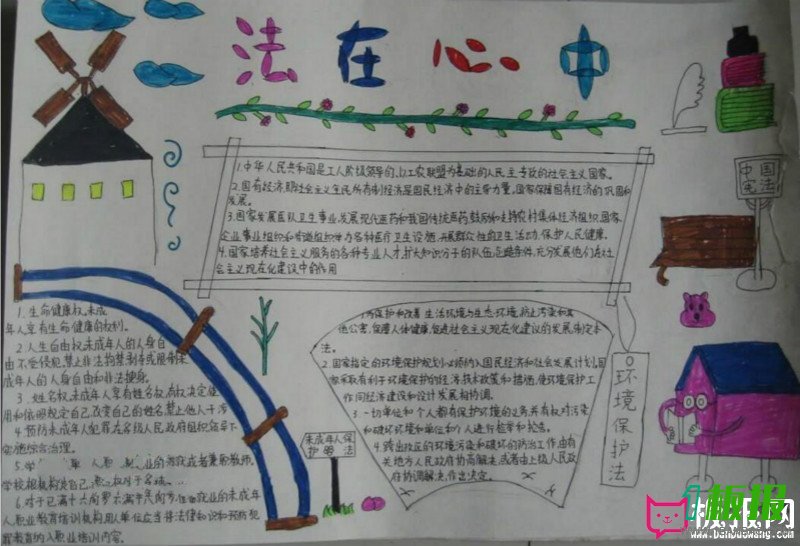 法在心中
1.中华人民共和国是工人阶级领导的、以工农联盟为基础的人民主专政的社会主义国家。
2.国有经济,即社会主义全民所有制经济,是国民经济中的主导力量,国家保障国有经济的巩固和
发展。
3.国家发展医疗卫生事业,发展现代医药和我国传统医药,鼓励和支持农村集体经济组织、国家
企业事业组织和街道组织举办各种医疗卫生设施,开展群众性的卫生活动,保护人民健康。
4.国家培养社会主义服务的各种专业人才,扩大知识分子的队伍,创造条件,充分发展他们在社
会主义现在化建设中的作用
中国
宪法
1.生命健康权,未成
年人享有生命健康的权利。
2.人生自由权未成年人的人身自
由不受侵犯,禁止非法拘禁
成年人的人身自由和非法搜身。
3.姓名权,未成年人享有姓名权,有权决定使
用和依照规定自己,改变自己的姓名,禁止他人干涉
4.预防未成年人犯罪在各级人民政府组织领导下
实施综合治理。
5.学
学校根
6.对于已满十六周岁
人,职业教育培训机构,用人单位应当将法律知识和预防犯
罪教育纳入职业培训内容。
未成年人保
护法
1.为保护和改善生活环境与生态环境,防止污染和其
他公害,保障人体健康,促进社会主义现在化建设的发展,制定本
法。
2.国家指定的环境保护规划必须纳入国民经济和社会发展计划,国
家采取有利于环境保护的经济、技术政策和措施,使环境保护工
作同经济建设和设计发展相协调。
3.一切单位和个人都有保护环境的义务,并有权对污染
和破坏环境的单位和个人进行检举和控告。
4.跨出政区的环境污染和破坏的防治工作,由有
关地方人民政府协商解决,或者由上级人民政
府协调解决,作出决定。
环境保护法
板报网
www.banbaowang.com